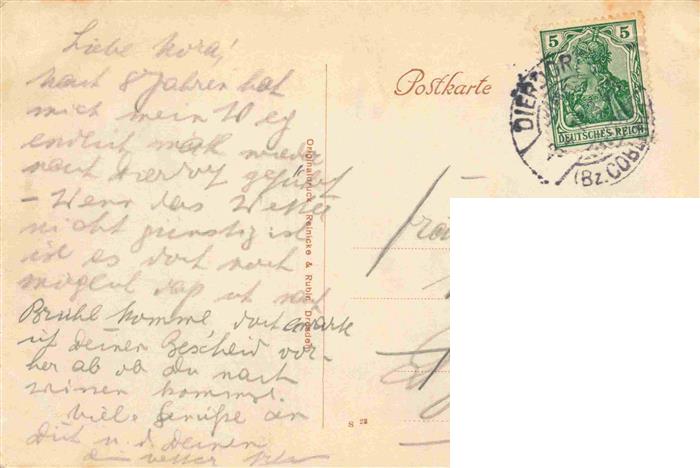 Liebe Kora!
nach 8 Jahren hat
mich mein Weg
endlich mal wieder
nach geführt
- Wenn das Wetter
nicht günstig ist
ist es doch noch
möglich dass ich nach
Brühl komme, doch warte
ich deinen Bescheid vor-
her ab ob du nach
kommst.
Viele Grüße an
Dich u. d. Deinen
dein Vetter
Originaldruck Reinicke & Rubin, Dresden
S 22
Postkarte
5 5
DEUTSCHES REICH
DIER
(Bz. COBL